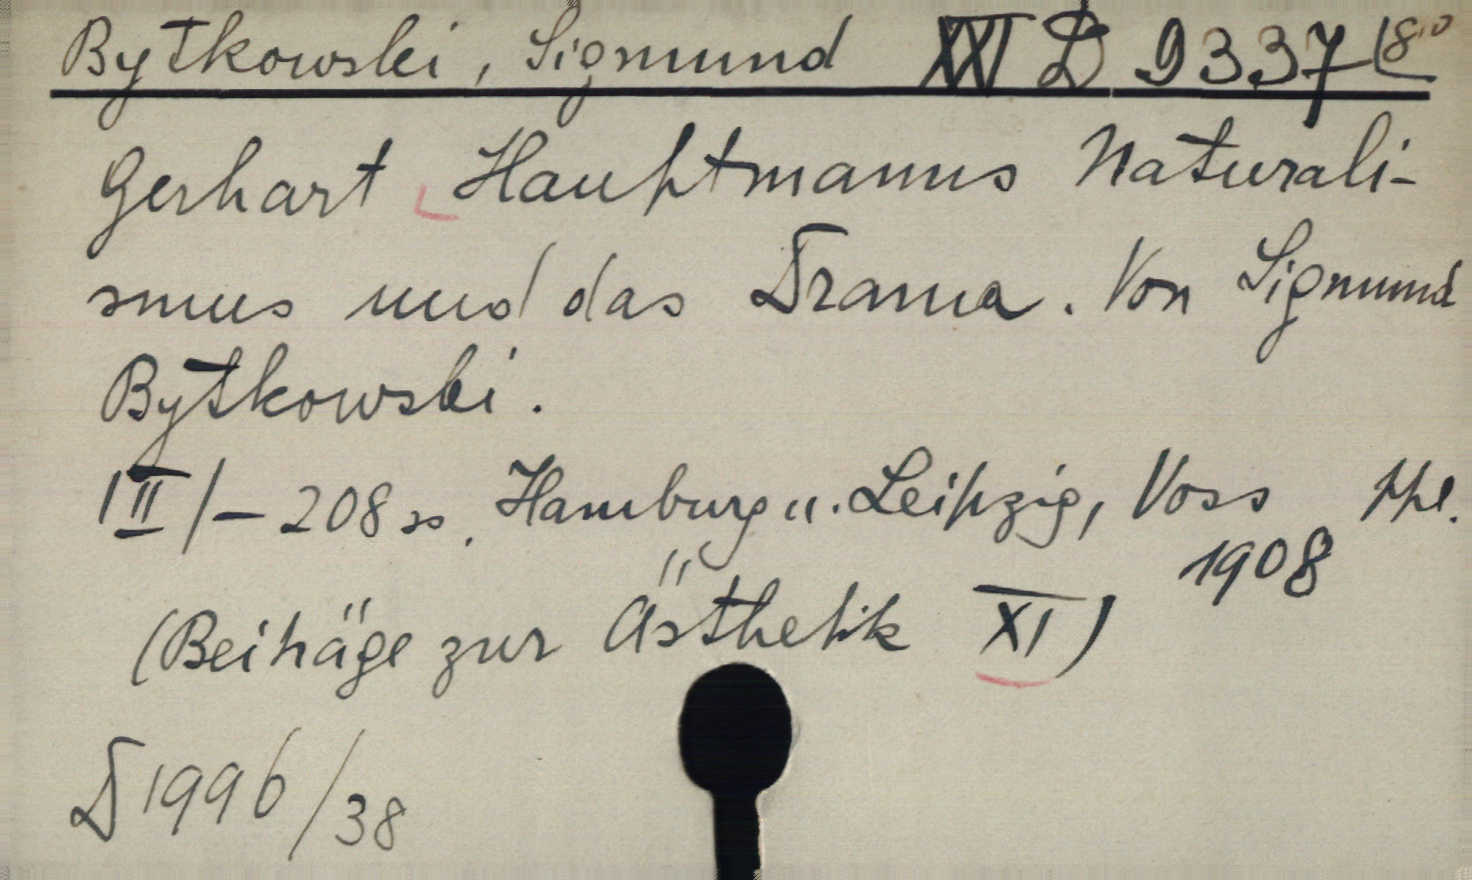 Bytkowski, Sigmund XXI D 9337 8⁰
Gerhart Hauptmanns Naturali-
smus und das Drama. Von Sigmund
Bytkowski.
|II|— 208 ss. Hamburg u. Leipzig, Voss
1908
(Beiträge zur Ästhetik XI)
D 1996/38